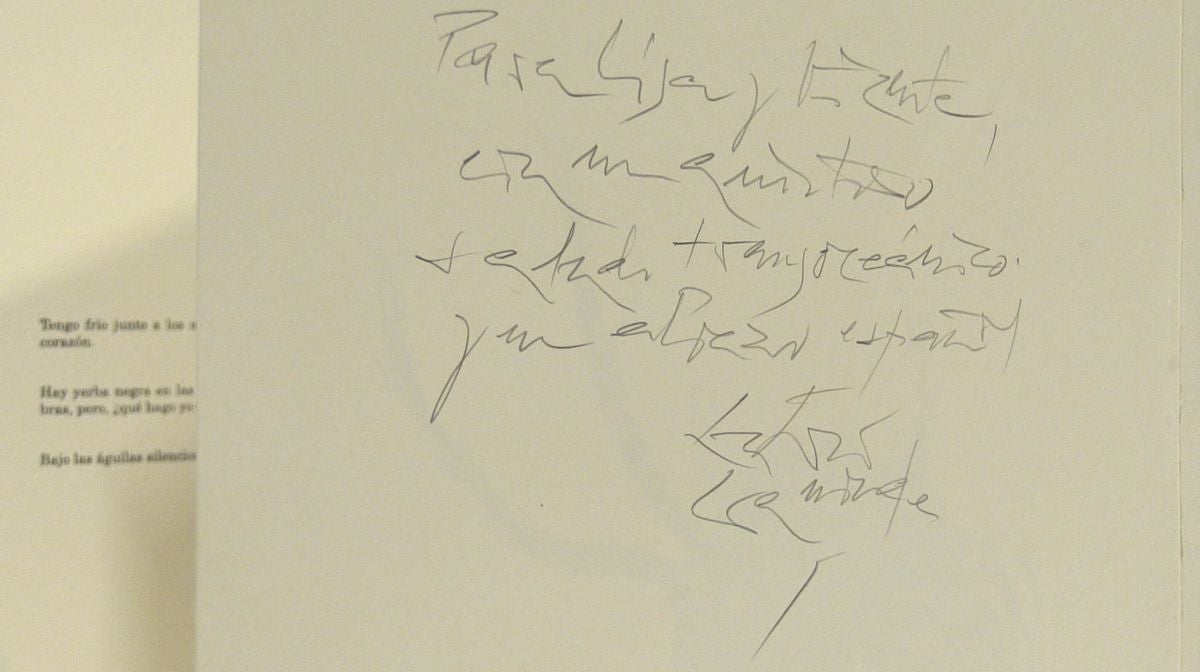 Tengo frío junto a los
corazón.
Hay yerba negra en las
bras, pero, ¿qué hago yo
Bajo las águilas silencio
Para Lisa y
con un amistoso
saludo transoceánico
y un abrazo español
Antonio
Gamoneda